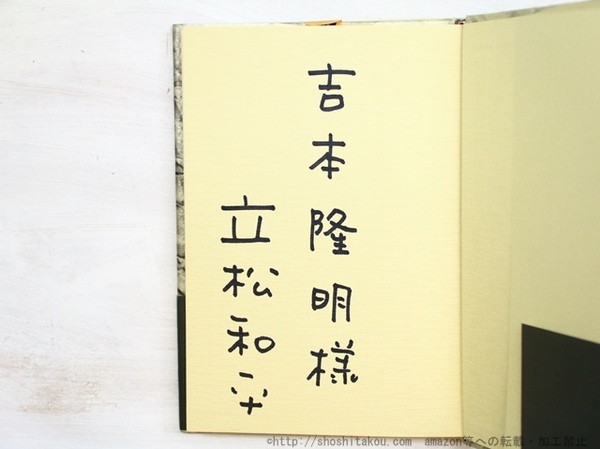 吉本隆明様
立松和平
©http://shoshitakou.com amazon等への転載・加工禁止